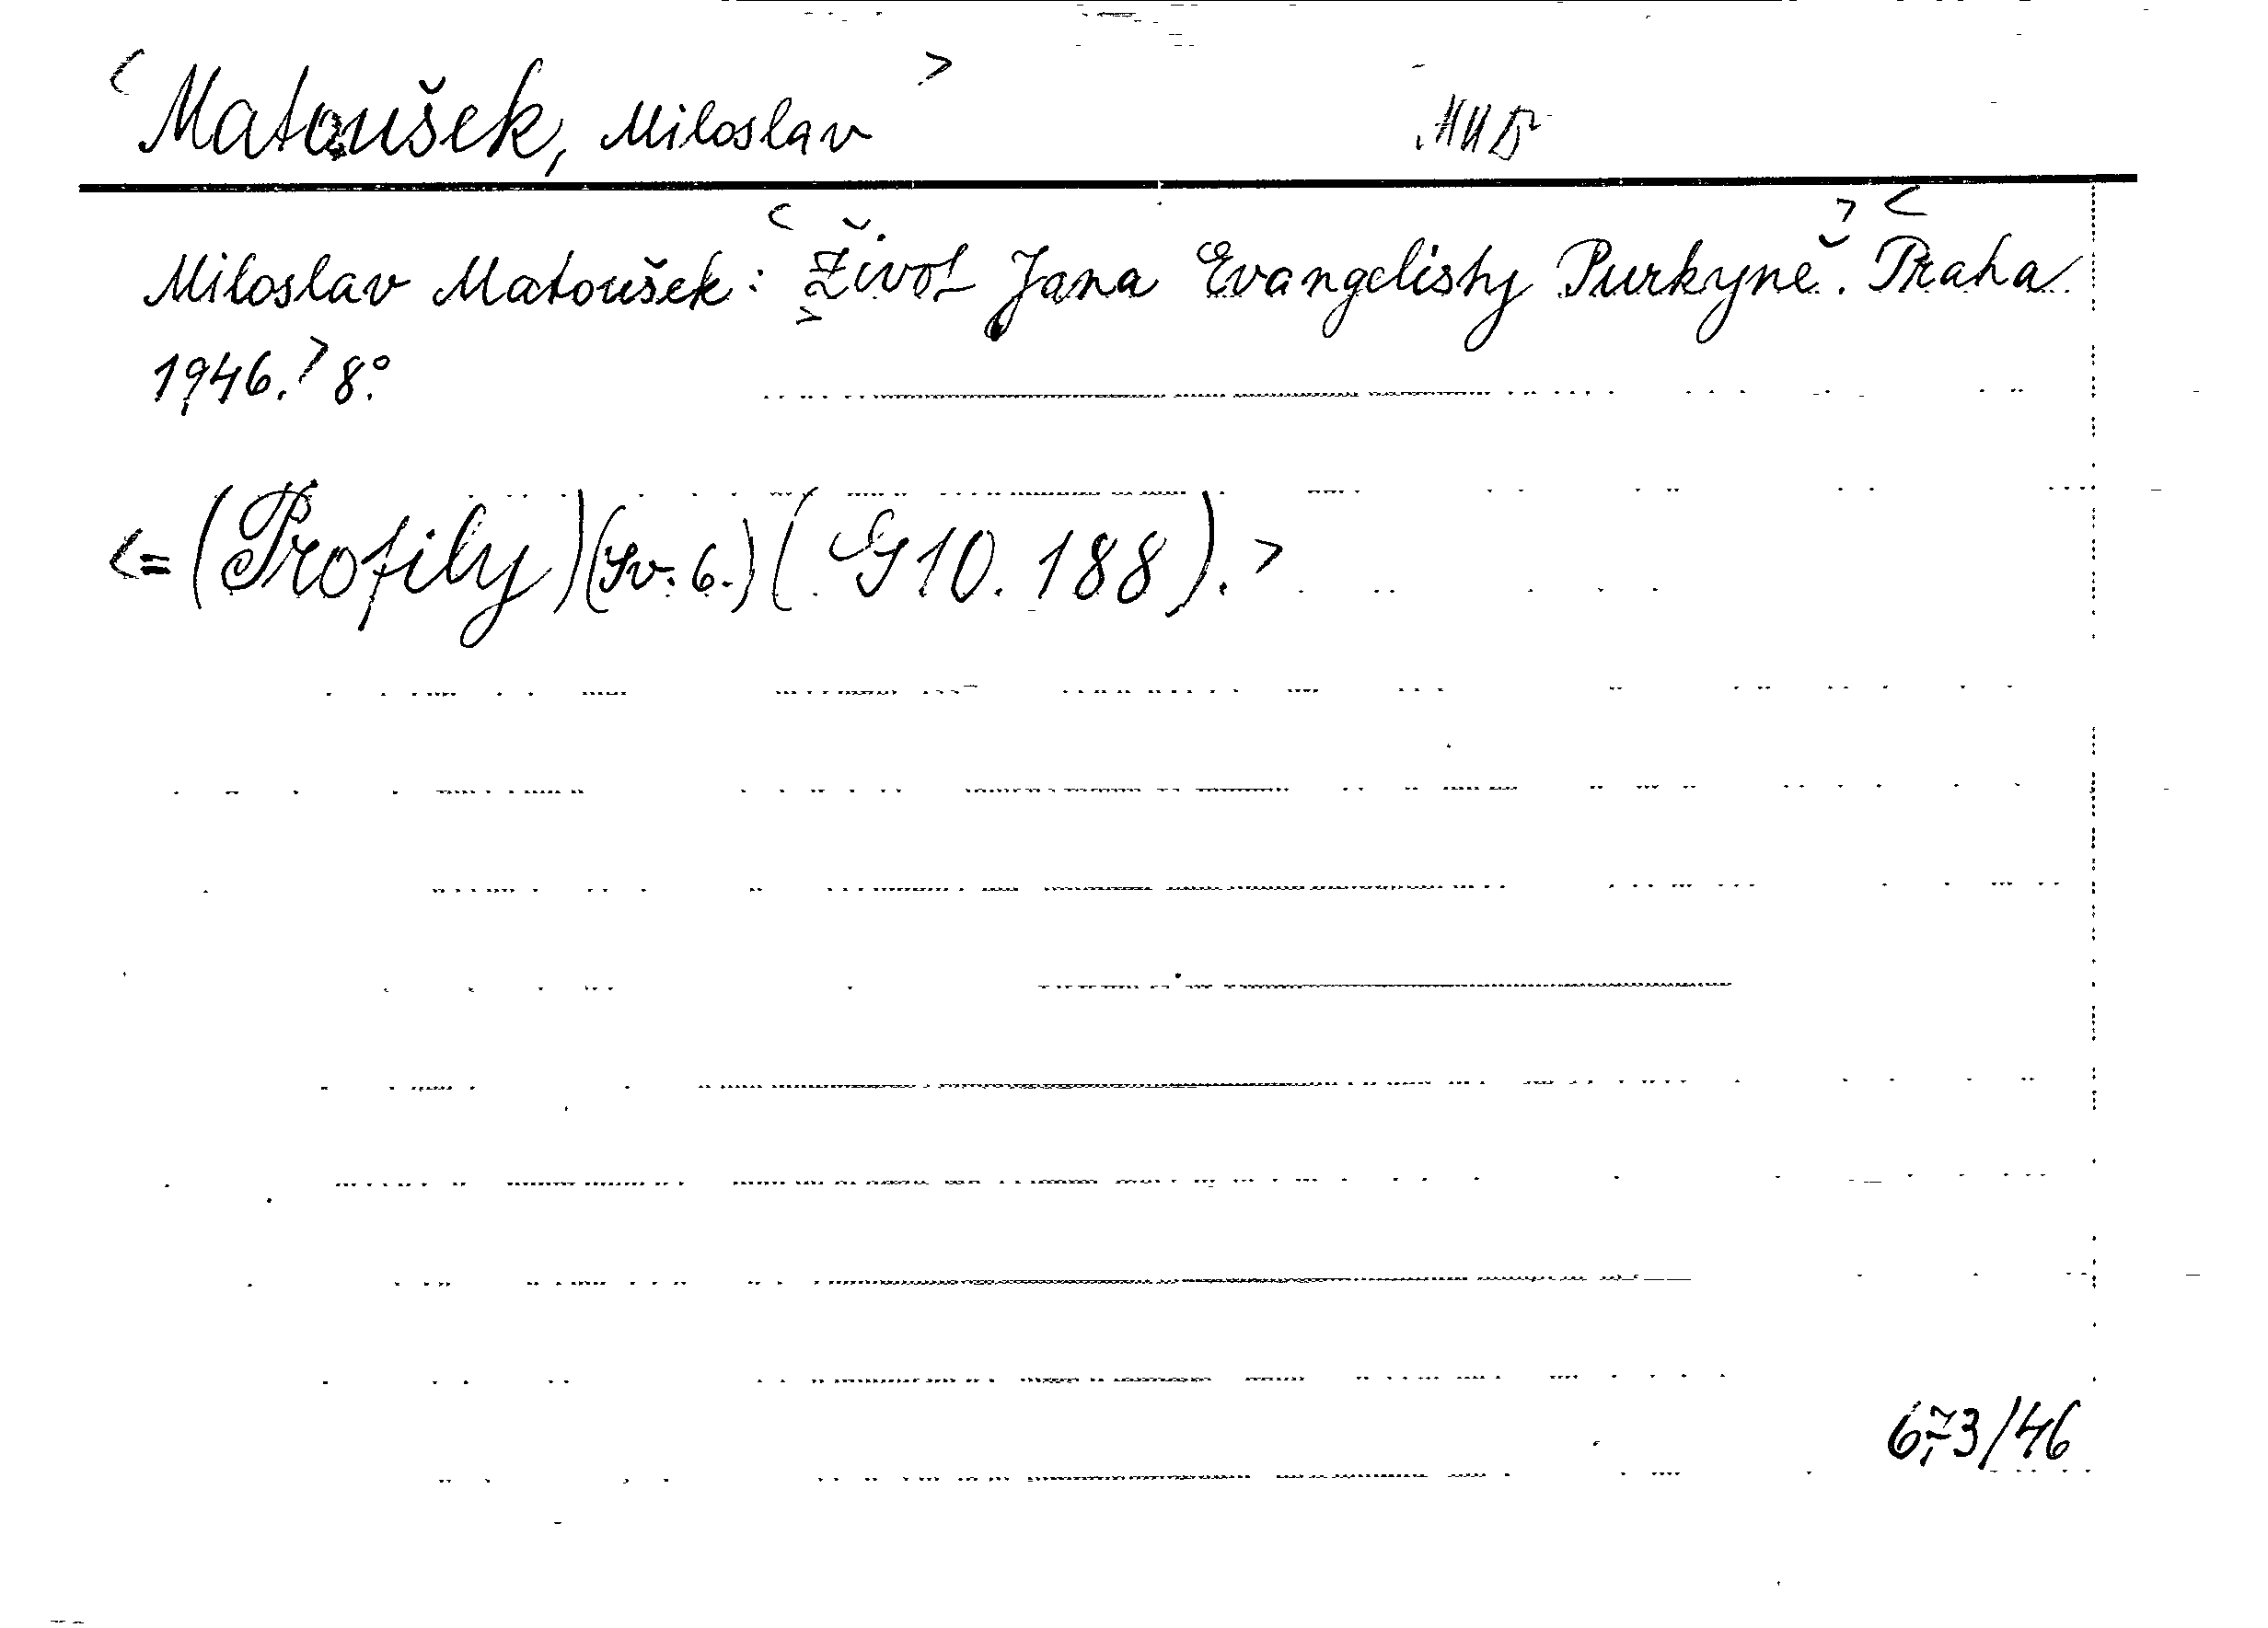 <Matoušek, Miloslav>
Miloslav Matoušek: <Život Jana Evangelisty Purkyně.> <Praha
1946.> 8°.
<=(Profily)(Sv. 6.)( 910.188).>
673/46